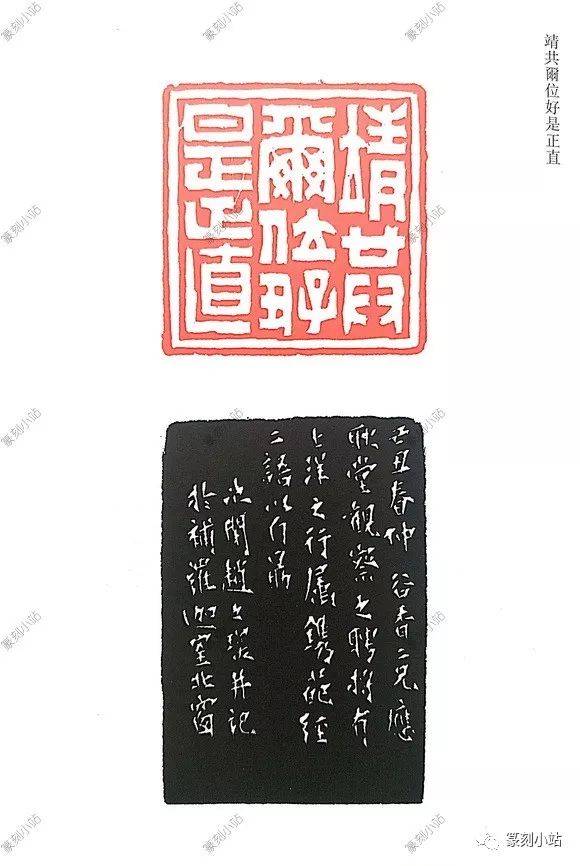 靖共爾位好是正直
靖共
爾位好
是正直
辛丑春仲谷香二兄應
耿堂觀察之聘將有
上洋之行屬鐫葩經
二語以自勗
次閑趙之琛并記
於補羅迦室北窗
篆刻小站